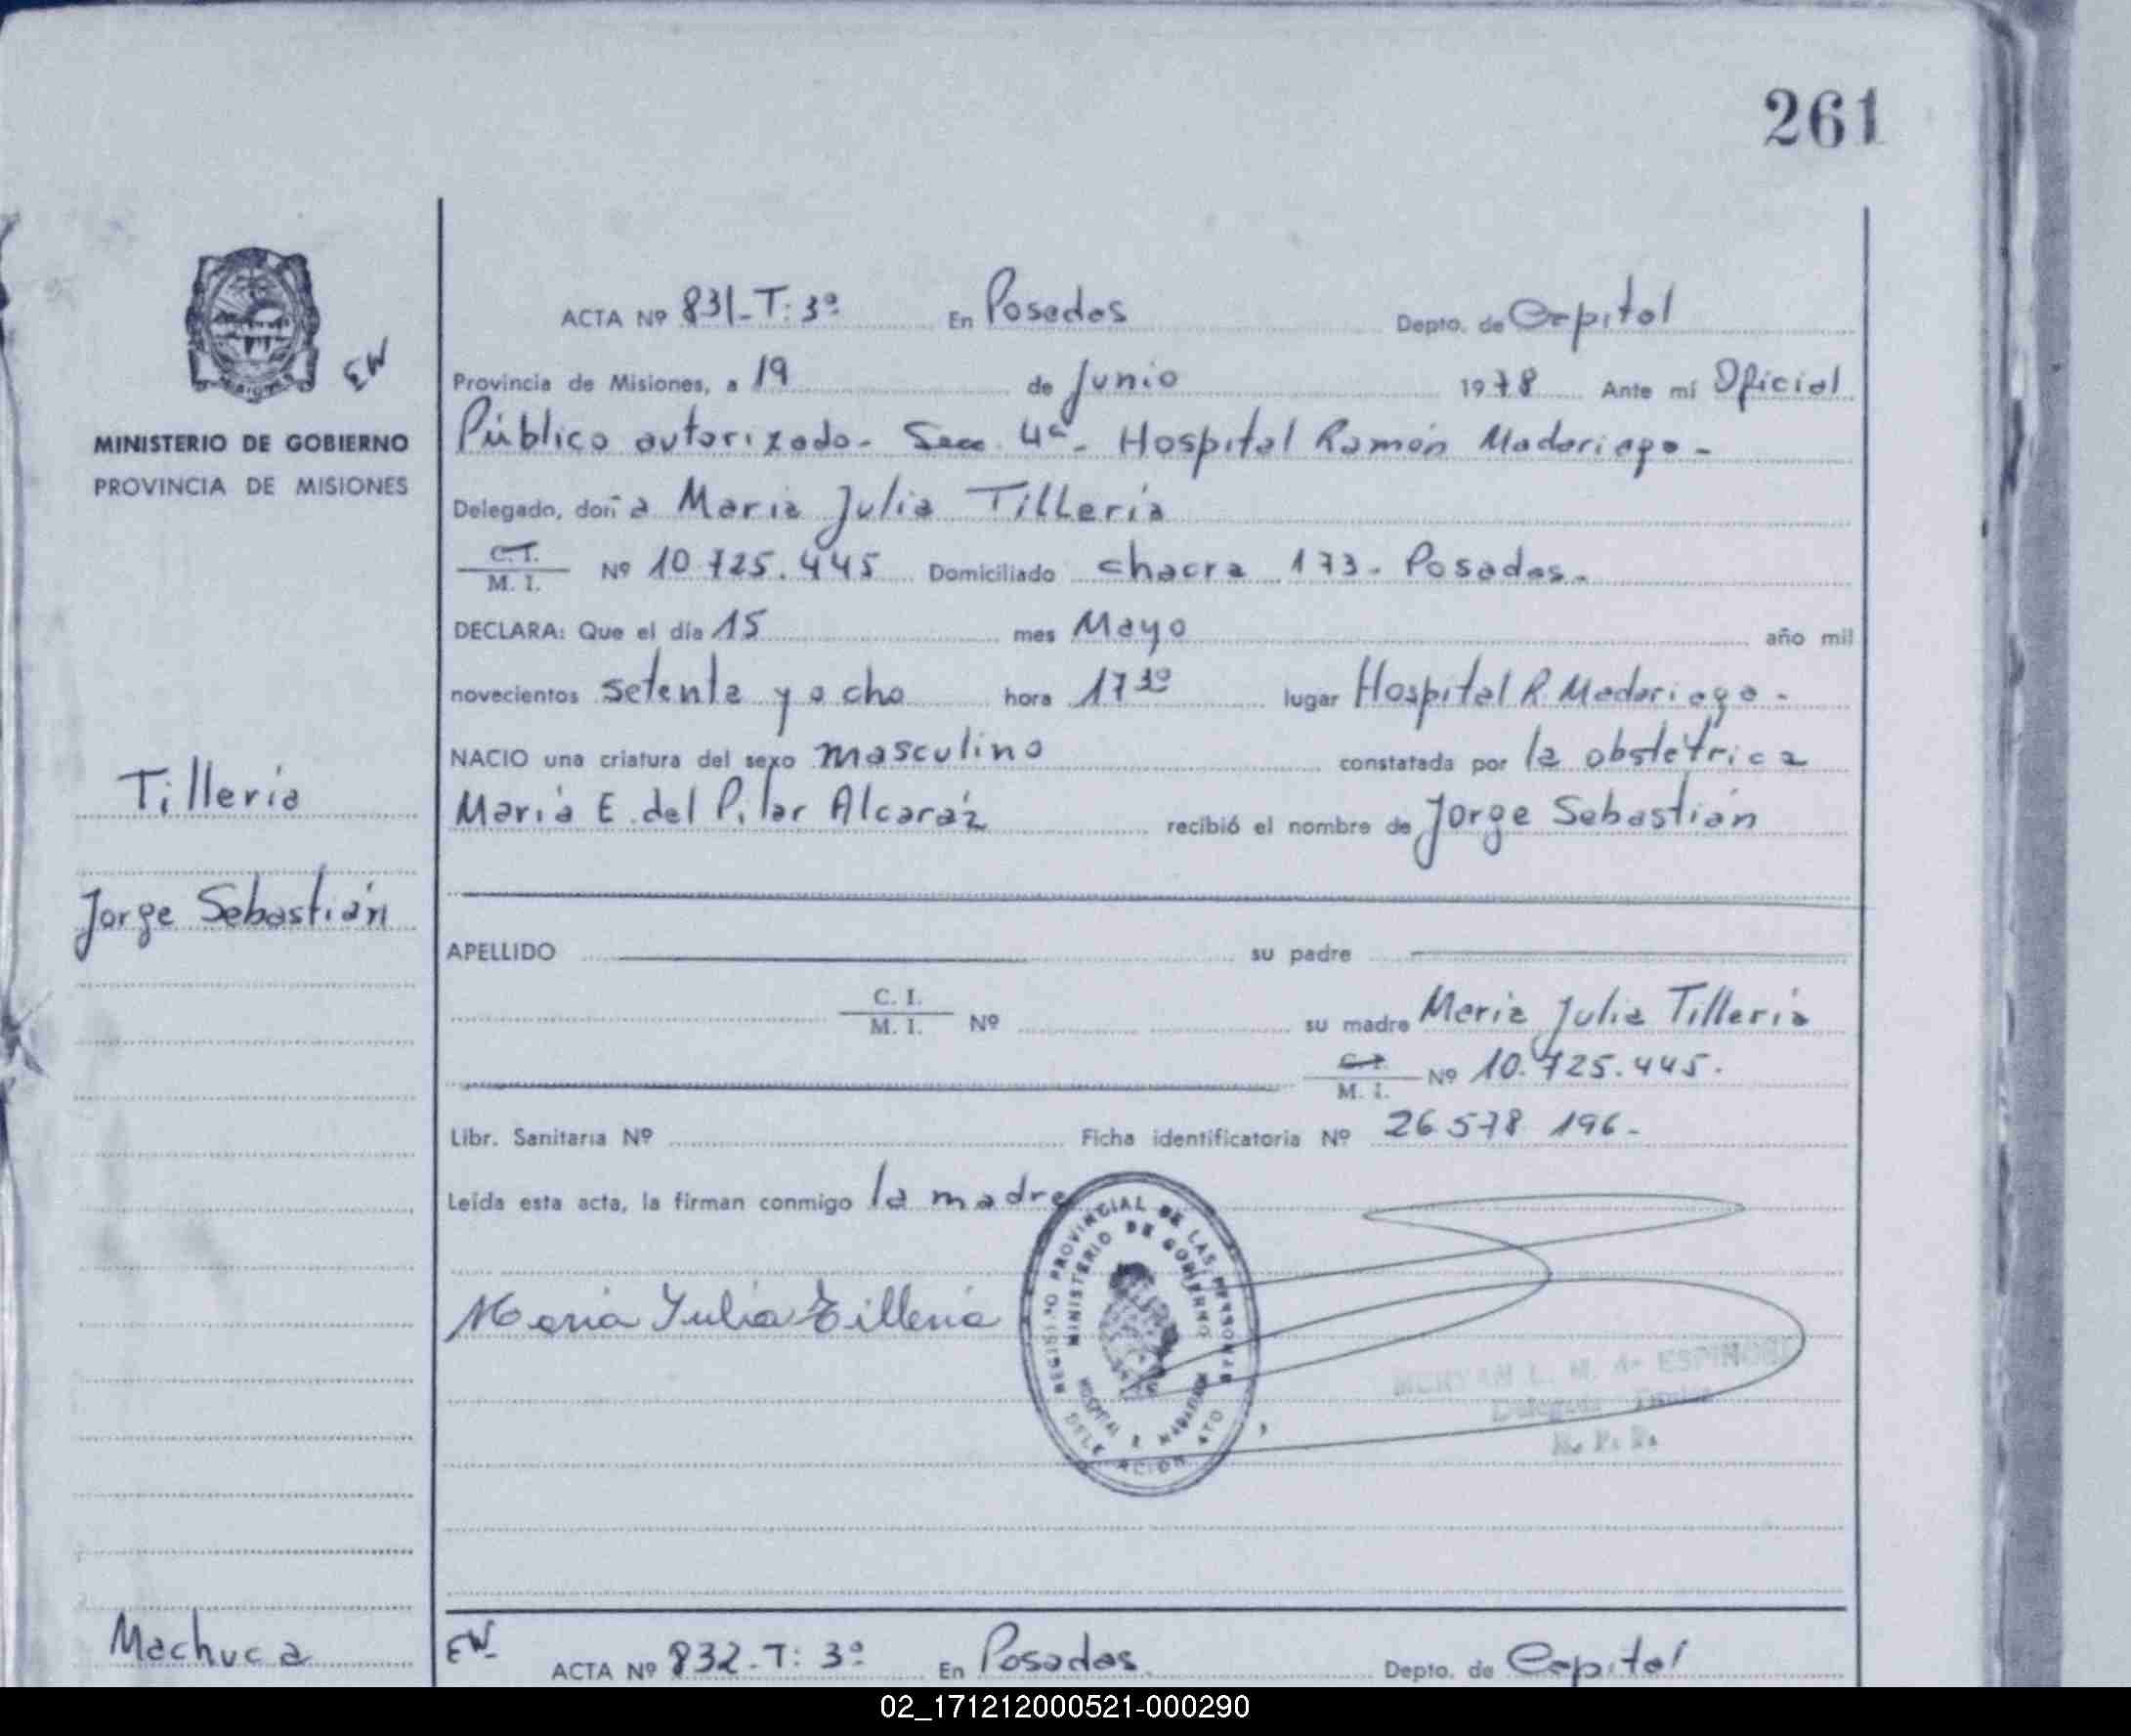 261
ACTA Nº 831-T: 3º En Posadas Depto. de Capital
EW
Provincia de Misiones, a 19 de Junio 1978 Ante mí Oficial
MINISTERIO DE GOBIERNO
PROVINCIA DE MISIONES
Público autorizado- Secc. 4ª- Hospital Ramón Madariaga-
Delegado, doña Maria Julia Tillería
C.I. M. I. Nº 10.725.445 Domiciliado chacra 173- Posadas-
DECLARA: Que el día 15 mes Mayo año mil
novecientos setenta y ocho hora 17 30 lugar Hospital R. Madariaga-
NACIO una criatura del sexo masculino constatada por la obstétrica
María E. del Pilar Alcaráz recibió el nombre de Jorge Sebastián
Tilleria
Jorge Sebastián
APELLIDO su padre
C. I. M. I. Nº su madre Maria Julia Tilleria
C. I. M. I. Nº 10.725.445.
Libr. Sanitaria Nº Ficha identificatoria Nº 26 578 196-
Leída esta acta, la firman conmigo la madre
Maria Julia Tilleria
REGISTRO PROVINCIAL DE LAS PERSONAS
MINISTERIO DE GOBIERNO
HOSPITAL R MADARIAGA
DELEGACION
ESPINOSA
Machuca
EW- ACTA Nº 832-T: 3º En Posadas Depto. de Capital
02_171212000521-000290